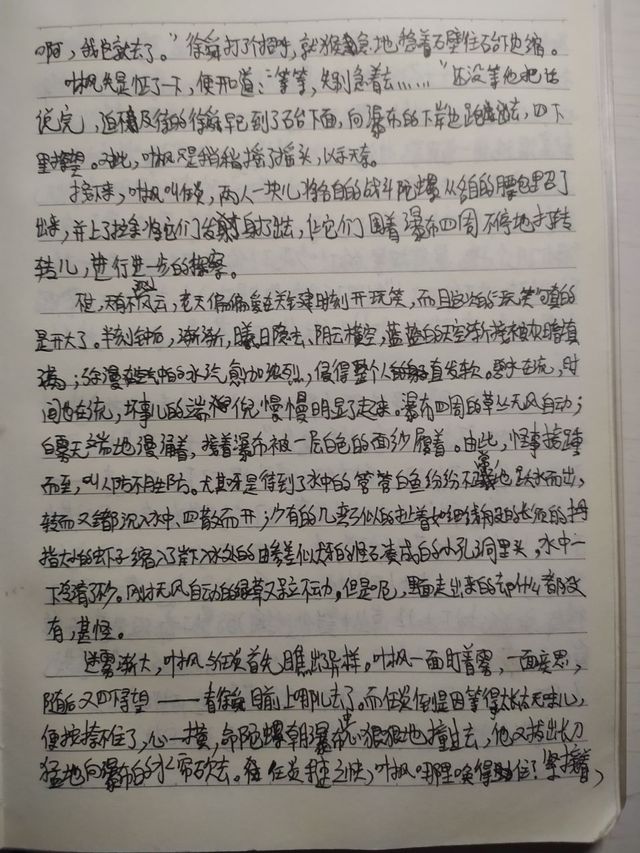 啊，我也就去了。"徐舜打了个招呼，就猴急地踏着石壁往石台下边缩。
叶枫先是怔了一下，便开道："等等，先别急着去……"还没等他把话
说完，迫不及待的徐舜早已到了石台下面，向瀑布的下岸边跑去，四下
里探望。对此，叶枫只是稍稍摇了摇头，以示无奈。
接下来，叶枫叫任炎，两人一块儿将各自的战斗陀螺从各自的腰包里召了
出来，并上了拉条将它们发射了出去，让它们围着瀑布四周不停地打转
转儿，进行进一步的探察。
但，天有不风云，老天偏偏爱在关键时刻开玩笑，而且这次的玩笑可真的
是开大了。半刻钟后，渐渐，曦日隐去、阴云横空，蓝蓝的天空渐渐被灰暗填
满；弥漫在空中的水汽愈加浓烈，侵得整个人的直发软。云在流，时
间也在流，坏事儿的端倪慢慢明显了起来。瀑布四周的草丛无风自动；
白雾无端地漫涌着，接着瀑布被一层白色的面纱覆着。由此，怪事接踵
而至，叫人防不胜防。尤其是得到了水中的白鱼纷纷不断地跃水而出，
转而又都沉入水中、四散而开；少有的几只扯着如细线般的长须的拇
指大小的虾子缩入了岸下水处的由参差似犬牙的怪石凑成的小孔洞里头，水中一
下没有了秒。刚才无风自动的绿草又呆立不动。但是呢，里面走出来的却什么都没
有，甚怪。
迷雾渐大，叶枫与任炎首先瞧出异样。叶枫一面盯着雾，一面哀思，
随后又四下望——看徐舜目前上哪儿去了。而任炎倒是因等得太长太无味儿，
便按捺不住了，心一横，命陀螺朝瀑布中心狠狠地撞过去，他又拔出长刀
猛地向瀑布的水帘砍去。任炎之快，叶枫哪里唤得住！紧接着，